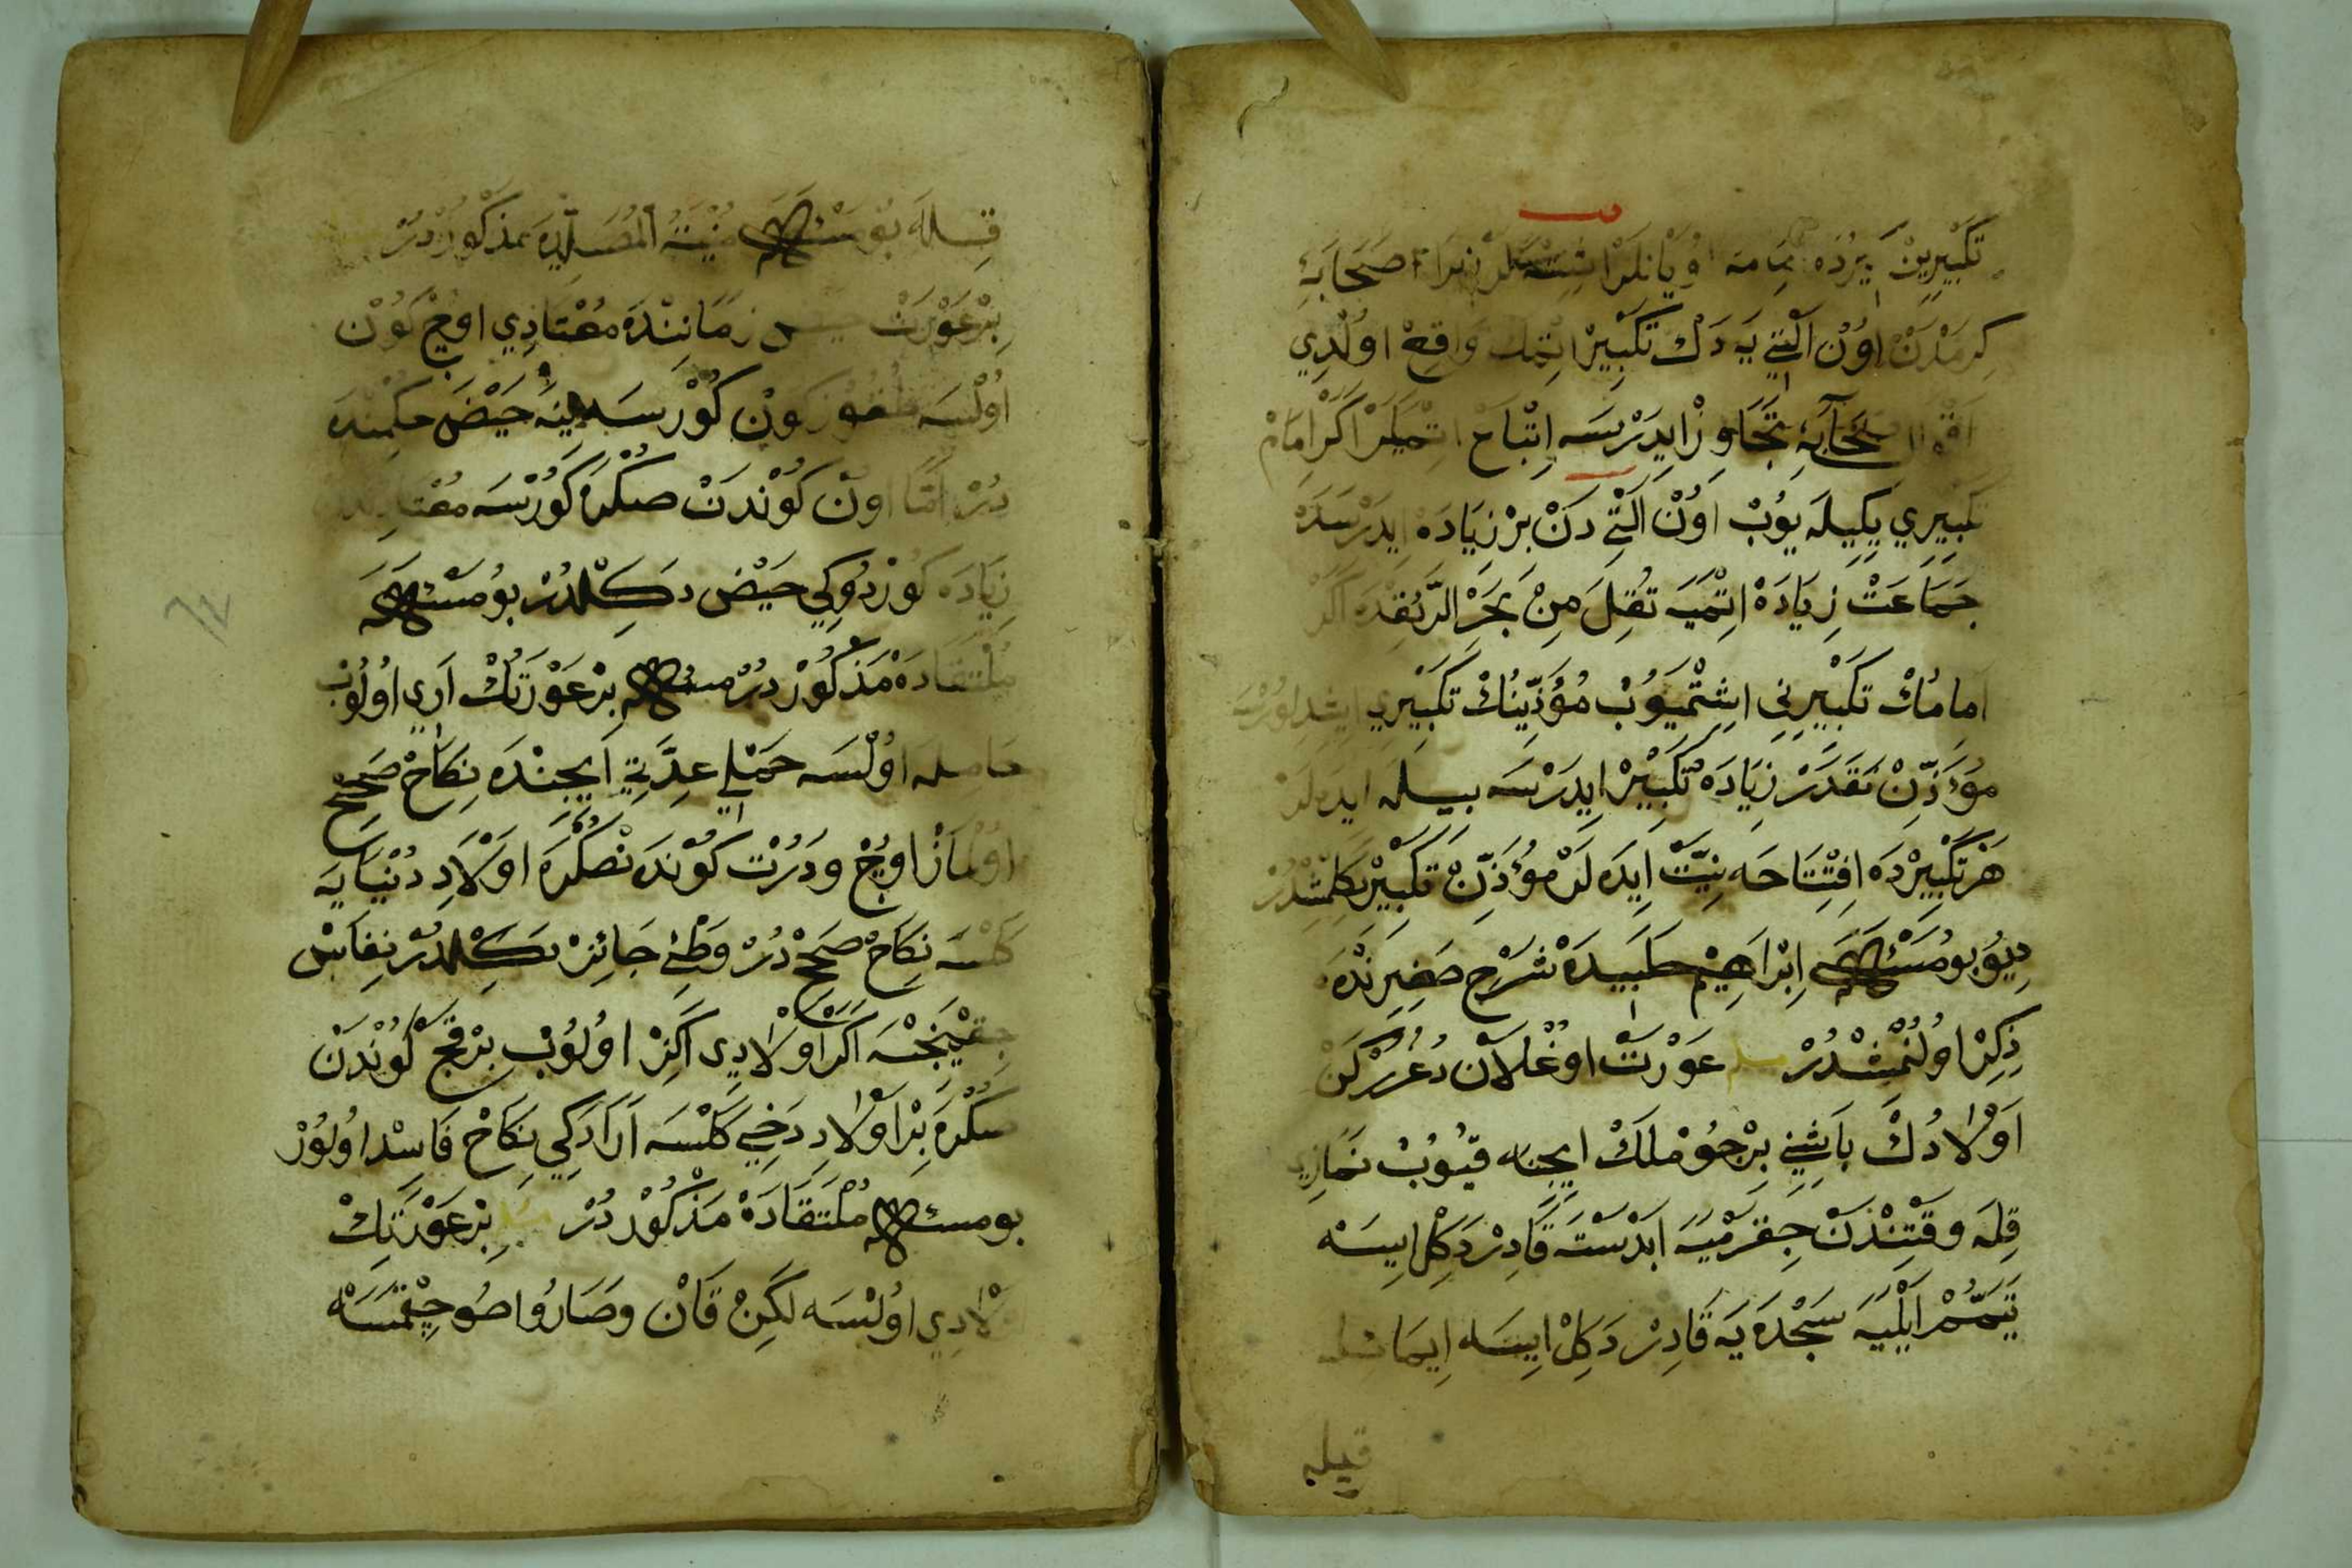 تَكْبِيرِينْ يَرْدَه اُويَانلَرْ زِيرَا صَحَابَهِٔ
كِرَمْدَنْ اوُنْ اَلْتِي يَه دَكْ تَكْبِيرْ اِتْمَك وَاقِعْ اوُلْدِي
اَقْوَال صَحَابَهِٔ تَجَاوُزْ ايدَرْسَه اِتْبَاعْ اِتْمَيَلَرْ اَكَرْ اِمَامْ
تَكْبِيرِي يِكِيلَه يوُبْ اَوُنْ اَلْتِي دَنْ بِرْ زِيَادَه اِيدَرْسَه
جَمَاعَتْ زِيَادَه اِتْمَيَه نُقِلَ مِنْ بَحْرِ الرَّائِقْدَه اَكَرْ
اِمَامُكْ تَكْبِيرِنِي اِشِتْمَيوُبْ مُؤَذِّنِنُكْ تَكْبِيرِي اِيشِدِلوُرْسَه
مُؤَذِّنْ نَقَدَرْ زِيَادَه تَكْبِيرْ اِيدَرْسَه بِيلَه اِيدَه لَرْ
هَرْ تَكْبِيرْدَه اِفْتِتَاحَه نِيَّتْ اِيدَه لَرْ مُؤَذِّنْ تَكْبِيرْ
دِيوُ بوُ مَسْئَلَه اِبْرَاهِيمْ حَلَبِيدَه شَرْحِ صَغِيرِنْدَه
ذِكِرْ اوُلُنْمِشْدُرْ مسله عَوْرَتْ اوُغْلَانْ دُغُرُرْكَنْ
اَوْلَادُكْ بَاشِنِي بِرْ جوُمْلَكْ اِيچِنَه قيُوُبْ نَمَازِي
قِلَه وَقْتِنْدَنْ چِقَرْمَيَه اَبْدَسْتَه قَادِرْ دَكِلْ اِيسَه
تَيَمُّمْ اَيْلَيَه سَجْدَه يَه قَادِرْ دَكِلْ اِيسَه اِيمَا
قيله
قِلَه بوُ مَسْئَلَه مُنْيَةُ الْمُصَلِّيدَه مَذْكوُرْدُرْ
بِرْ عَوْرَتْ حيض زَمَانِنْدَه مُعْتَادِي اوُچْ كوُنْ
اوُلْسَه طقوز كوُن كوُرْسَه يِنَه حَيْضْ حُكْمِنْدَه
دُرْ اَمَّا اوُن كوُنْدَنْ صُكْرَه كوُرْسَه مُعْتَادِنْدَنْ
زِيَادَه كوُرْدُوكِي حَيْض دَكِلْدُرْ بوُ مَسْئَلَه
مُلْتَقَادَه مَذْكوُرْ دُرْ مسئله بِرْ عَوْرَتُكْ اَرِي اوُلوُب
حَامله اوُلْسَه حَمْلِي عِدَّتِي اِيچِنْدَه نِكَاحْ صَحِيحْ
اوُلْمَازْ اوُچْ وَدُرْت كوُنْدَنْ صُكْرَه اَوْلَادِ دُنْيَايَه
كَلْسَه نِكَاحْ صَحِيحْ دُرْ وَطْئِ جَائِزْ دَكِلْدُرْ نِفَاسْ
چِقْمَينجَه اَكَرْ اَوْلَادِي اَكِزْ اوُلوُبْ بِرْ قَچْ كوُنْدَنْ
صُكْرَه بِرْ اَوْلَادِ دَخِي كَلْسَه اَرَادَكِي نِكَاحْ فَاسِدْ اوُلوُرْ
بوُ مسئله مُلْتَقَادَه مَذْكوُر دُرْ مسله بِرْ عَوْرَتِكْ
اَوْلَادِي اوُلْسَه لَكِنْ قَانْ وصَارُو صُو چِقْمَسَه